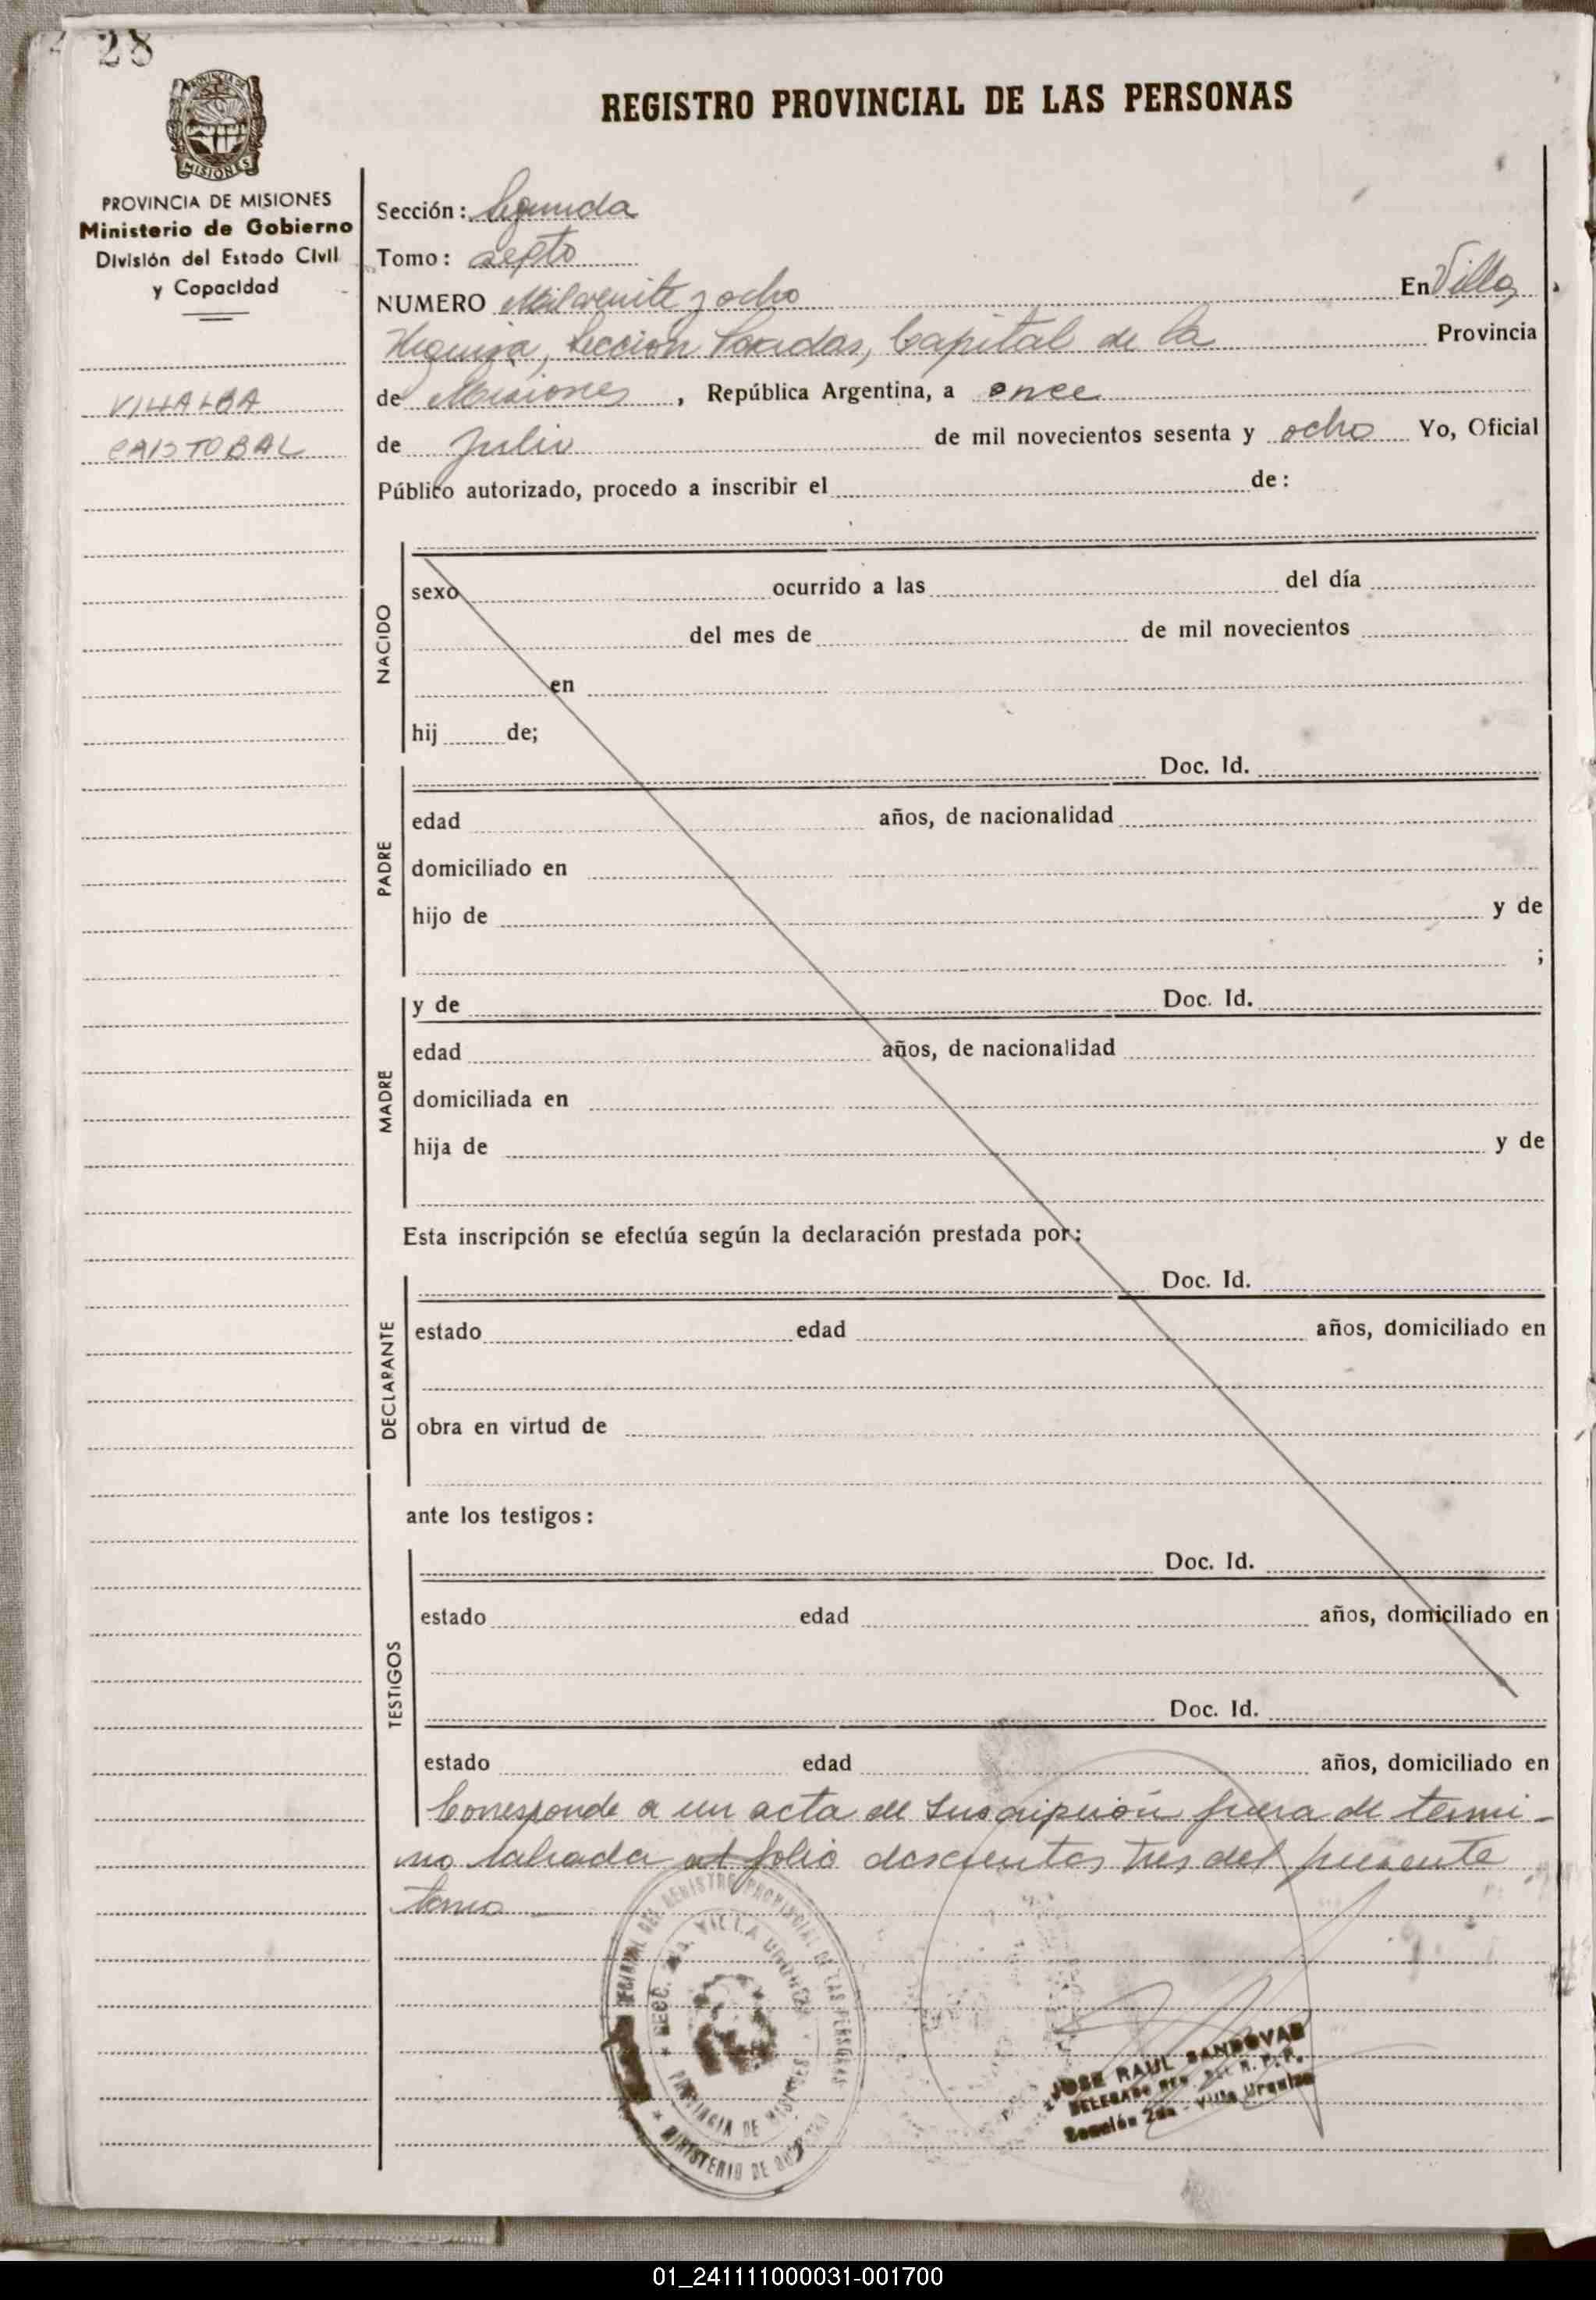 28
REGISTRO PROVINCIAL DE LAS PERSONAS
PROVINCIA DE MISIONES
MISIONES
PROVINCIA DE MISIONES
Ministerio de Gobierno
División del Estado Civil
y Capacidad
VILLALBA
CRISTOBAL
Sección: Segunda
Tomo: septo
NUMERO Mil veinte y ocho En Villa
Urquiza, Seccion Posadas, Capital de la Provincia
de Misiones, República Argentina, a once
de Julio de mil novecientos sesenta y ocho Yo, Oficial
Público autorizado, procedo a inscribir el de:
NACIDO
sexo ocurrido a las del día
del mes de de mil novecientos
en
hij de;
PADRE
Doc. Id.
edad años, de nacionalidad
domiciliado en
hijo de y de
;
MADRE
y de Doc. Id.
edad años, de nacionalidad
domiciliada en
hija de y de
Esta inscripción se efectúa según la declaración prestada por:
DECLARANTE
Doc. Id.
estado edad años, domiciliado en
obra en virtud de
ante los testigos:
TESTIGOS
Doc. Id.
estado edad años, domiciliado en
Doc. Id.
estado edad años, domiciliado en
Corresponde a un acta de Inscripción fuera de termi-
no labrada al folio doscientos tres del presente
tomo
REGISTRO PROVINCIAL DE LAS PERSONAS
SECC. 2da. VILLA URQUIZA
PROVINCIA DE MISIONES
MINISTERIO DE GOBIERNO
JOSE RAUL SANDOVAL
DELEGADO REG. DEL R. P. P.
Sección 2da - Villa Urquiza
01_241111000031-001700